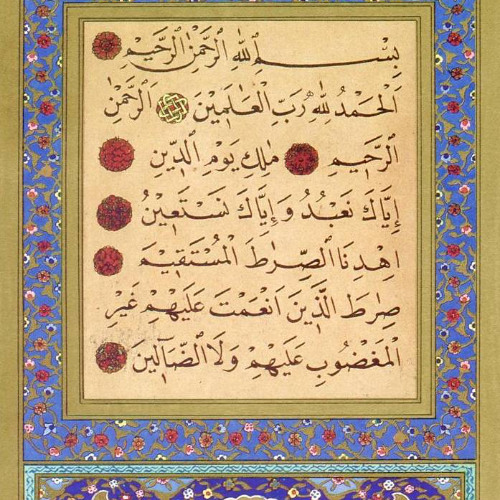 بِسْمِ ٱللهِ ٱلرَّحْمٰنِ ٱلرَّحِيمِ
اَلْحَمْدُ لِلّٰهِ رَبِّ ٱلْعَالَمِينَ ٱلرَّحْمٰنِ
ٱلرَّحِيمِ مٰلِكِ يَوْمِ ٱلدِّينِ
اِيَّاكَ نَعْبُدُ وَاِيَّاكَ نَسْتَعِينُ
اِهْدِنَا ٱلصِّرٰطَ ٱلْمُسْتَقِيمَ
صِرٰطَ ٱلَّذِينَ اَنْعَمْتَ عَلَيْهِمْ غَيْرِ
ٱلْمَغْضُوبِ عَلَيْهِمْ وَلَا ٱلضَّآلِّينَ